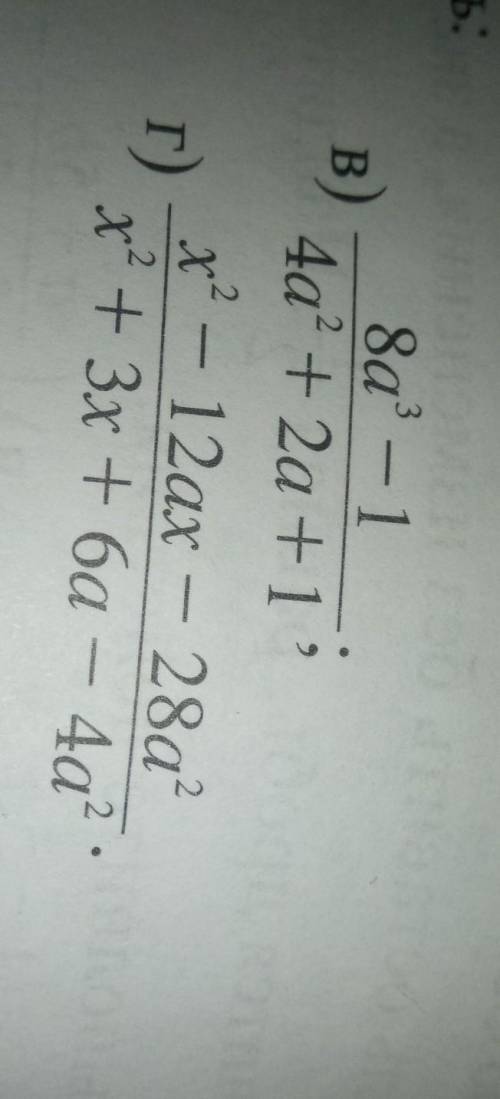 ь:
в) 8a³ − 1
4a² + 2a + 1 ;
г) x² − 12ax − 28a²
x² + 3x + 6a − 4a² .